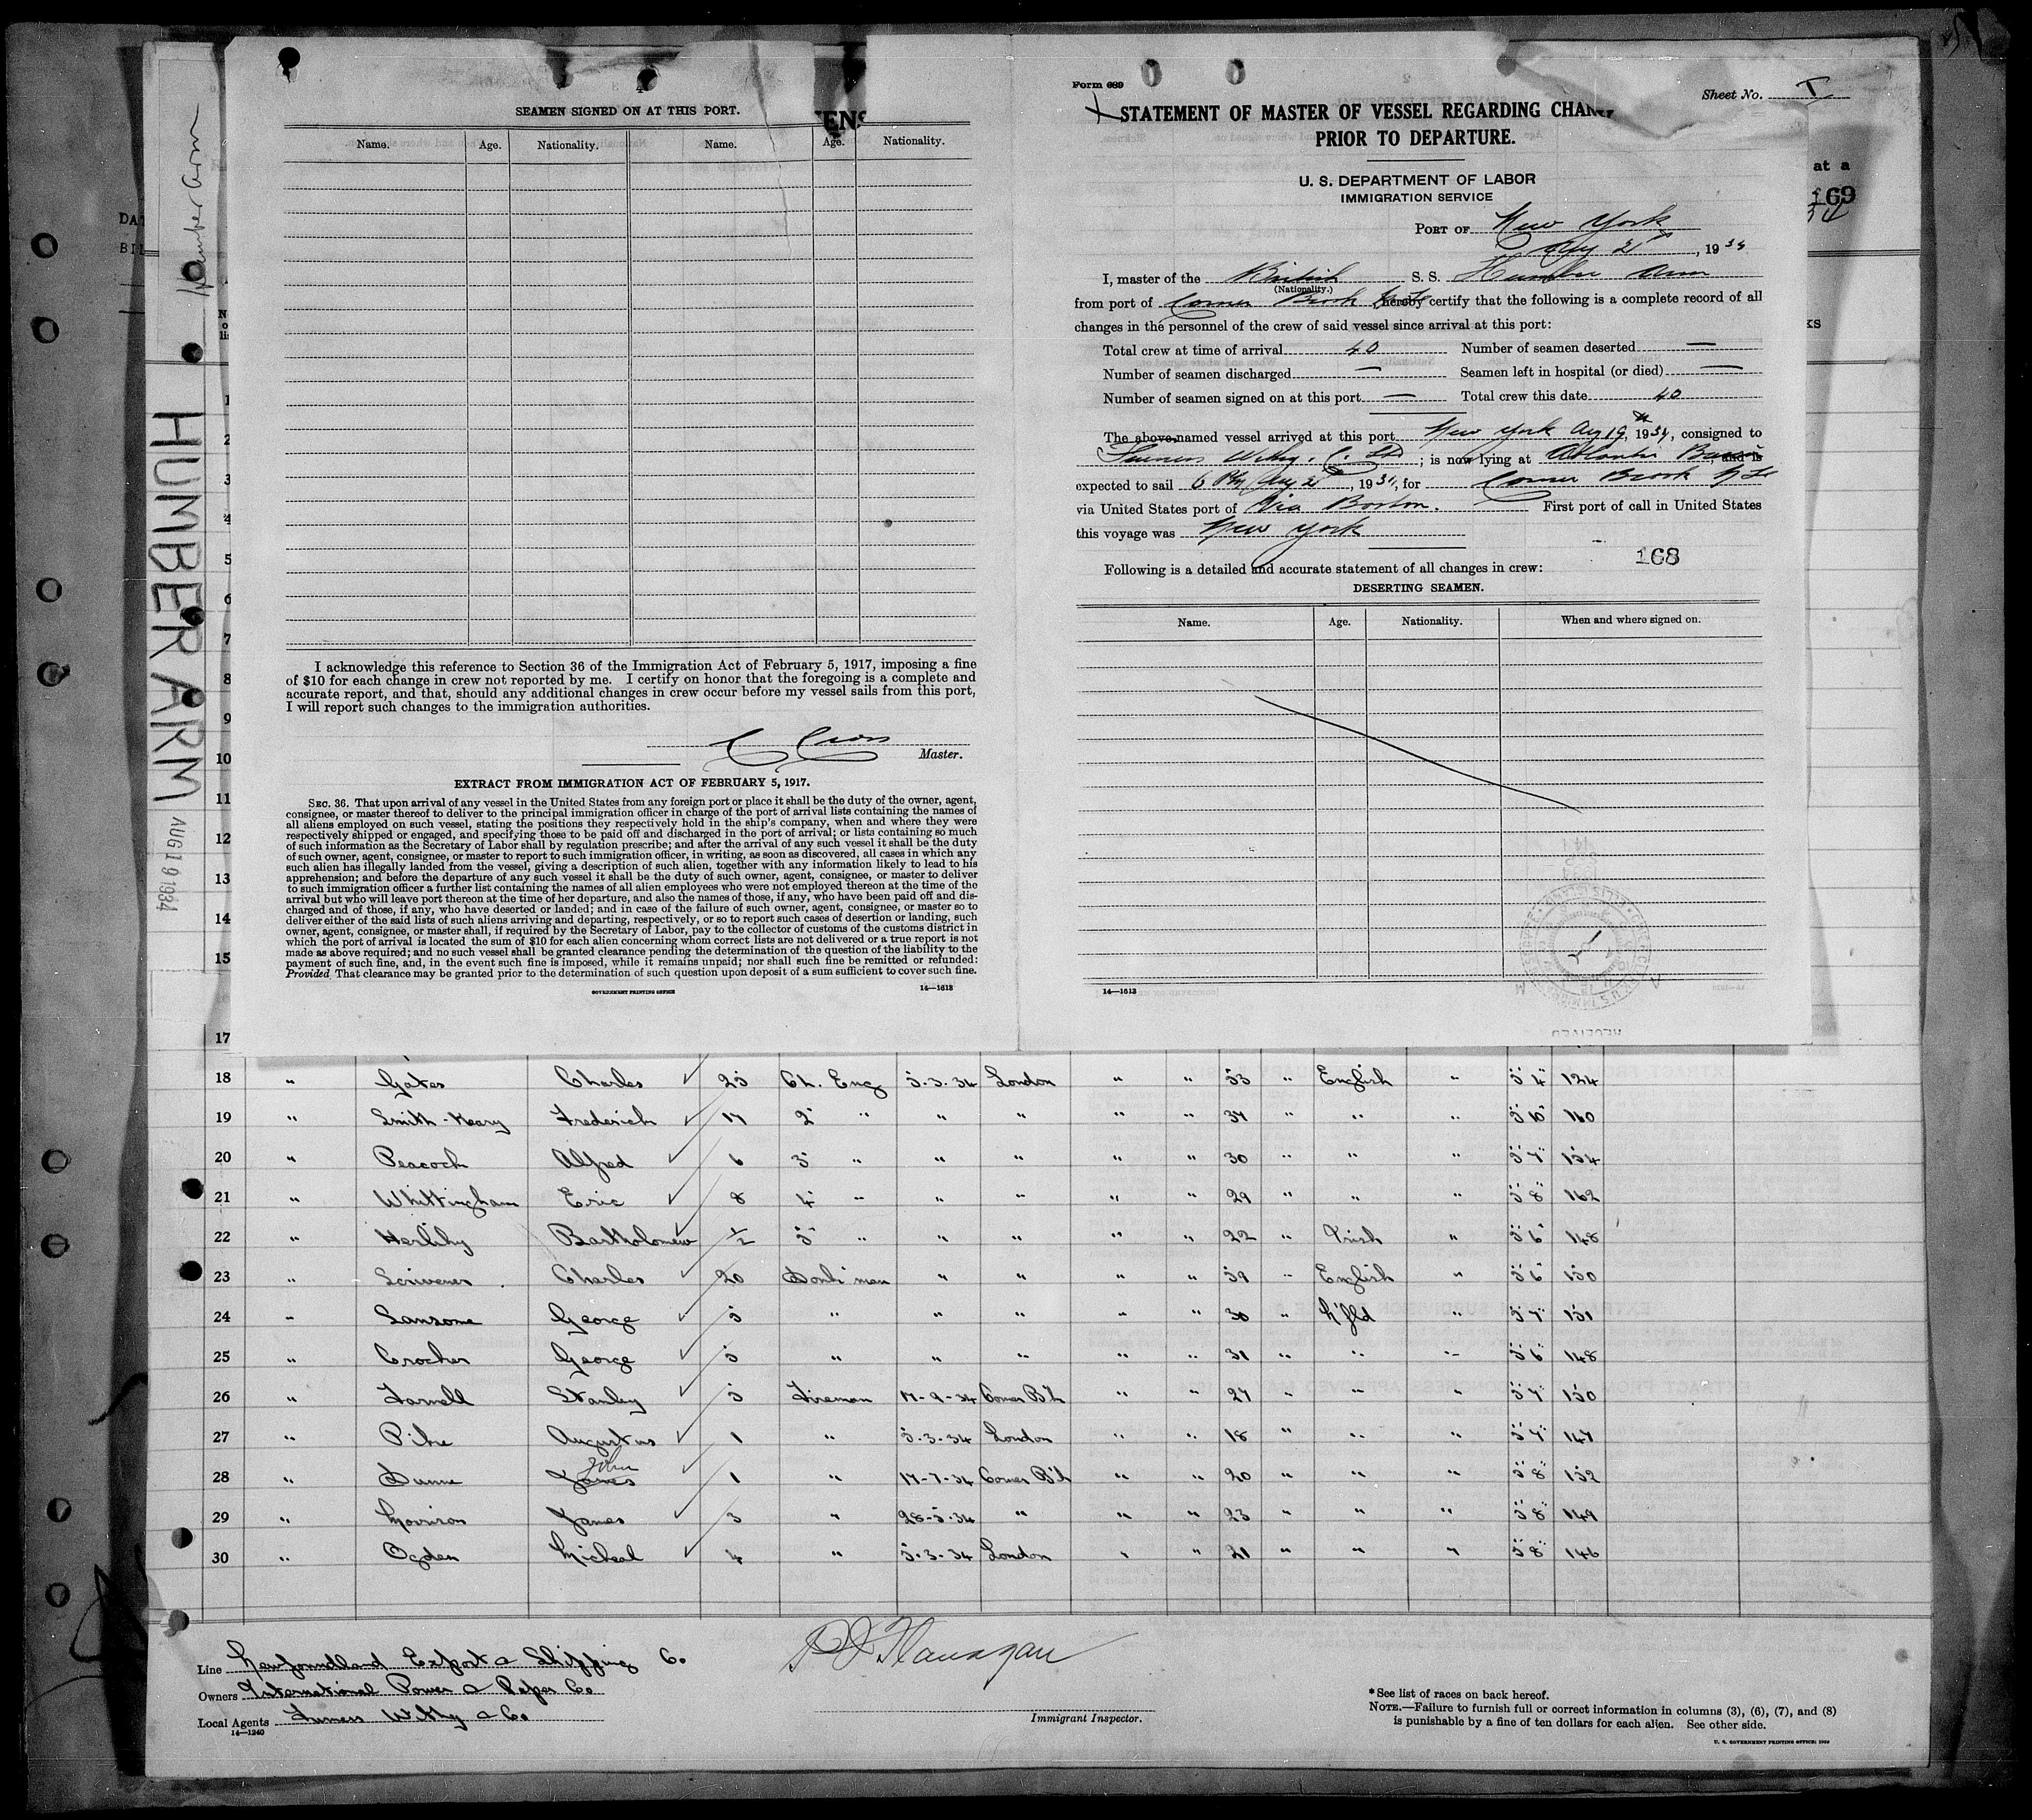 Humber Arm
HUMBER ARM
AUG 19 1934
4
SEAMEN SIGNED ON AT THIS PORT.
Name. Age. Nationality. Name. Age. Nationality.
I acknowledge this reference to Section 36 of the Immigration Act of February 5, 1917, imposing a fine
of $10 for each change in crew not reported by me. I certify on honor that the foregoing is a complete and
accurate report, and that, should any additional changes in crew occur before my vessel sails from this port,
I will report such changes to the immigration authorities.
C Cross
Master.
EXTRACT FROM IMMIGRATION ACT OF FEBRUARY 5, 1917.
SEC. 36. That upon arrival of any vessel in the United States from any foreign port or place it shall be the duty of the owner, agent,
consignee, or master thereof to deliver to the principal immigration officer in charge of the port of arrival lists containing the names of
all aliens employed on such vessel, stating the positions they respectively hold in the ship's company, when and where they were
respectively shipped or engaged, and specifying those to be paid off and discharged in the port of arrival; or lists containing so much
of such information as the Secretary of Labor shall by regulation prescribe; and after the arrival of any such vessel it shall be the duty
of such owner, agent, consignee, or master to report to such immigration officer, in writing, as soon as discovered, all cases in which any
such alien has illegally landed from the vessel, giving a description of such alien, together with any information likely to lead to his
apprehension; and before the departure of any such vessel it shall be the duty of such owner, agent, consignee, or master to deliver
to such immigration officer a further list containing the names of all alien employees who were not employed thereon at the time of the
arrival but who will leave port thereon at the time of her departure, and also the names of those, if any, who have been paid off and dis-
charged and of those, if any, who have deserted or landed; and in case of the failure of such owner, agent, consignee, or master so to
deliver either of the said lists of such aliens arriving and departing, respectively, or so to report such cases of desertion or landing, such
owner, agent, consignee, or master shall, if required by the Secretary of Labor, pay to the collector of customs of the customs district in
which the port of arrival is located the sum of $10 for each alien concerning whom correct lists are not delivered or a true report is not
made as above required; and no such vessel shall be granted clearance pending the determination of the question of the liability to the
payment of such fine, and, in the event such fine is imposed, while it remains unpaid; nor shall such fine be remitted or refunded:
Provided, That clearance may be granted prior to the determination of such question upon deposit of a sum sufficient to cover such fine.
GOVERNMENT PRINTING OFFICE 14—1613
Form 689
Sheet No. I
STATEMENT OF MASTER OF VESSEL REGARDING CHAN
PRIOR TO DEPARTURE.
U. S. DEPARTMENT OF LABOR
IMMIGRATION SERVICE
PORT OF New York
Aug 21st, 1934
I, master of the British S. S. Humber Arm
(Nationality.)
from port of Corner Brook N.F. hereby certify that the following is a complete record of all
changes in the personnel of the crew of said vessel since arrival at this port:
Total crew at time of arrival 40 Number of seamen deserted —
Number of seamen discharged — Seamen left in hospital (or died) —
Number of seamen signed on at this port — Total crew this date 40
The above-named vessel arrived at this port New York Aug 19th, 1934, consigned to
Furness Withy. Co. Ltd; is now lying at Atlantic Basin, and is
expected to sail 6 PM Aug 21st, 1934, for Corner Brook N.F.
via United States port of Via Boston. First port of call in United States
this voyage was New York
168
Following is a detailed and accurate statement of all changes in crew:
DESERTING SEAMEN.
Name. Age. Nationality. When and where signed on.
14—1613
at a
169
34
KS
1
2
3
4
5
6
7
8
9
10
11
12
13
14
15
17
18 " Gates Charles 25 Ch. Eng 5.3.34 London " " 53 " English " 5'4" 124
19 " Smith-Keary Frederick 17 2" " " " " " 37 " " " 5'10" 160
20 " Peacock Alfred 6 3" " " " " " 30 " " " 5'7" 154
21 " Whittingham Eric 8 4" " " " " " 29 " " " 5'8" 162
22 " Herlihy Bartholomew 1/2 5" " " " " " 22 " Irish " 5'6" 148
23 " Scrivener Charles 20 Donk'man " " " " 59 " English " 5'6" 150
24 " Sansome George 5 " " " " " 30 " N'fld " 5'7" 151
25 " Crocker George 5 " " " " " 31 " " " 5'6" 148
26 " Farnell Stanley 5 Fireman 17-9-34 Corner B'k " " 27 " " " 5'7" 150
27 " Pike Augustus 1 " 5.3.34 London " " 18 " " " 5'7" 147
John
28 " Dunne James 1 " 17-7-34 Corner B'k " " 20 " " " 5'8" 152
29 " Morrison James 3 " 28-5-34 " " " 23 " " " 5'8" 149
30 " Ogden Micheal 4 " 5.3.34 London " " 21 " " " 5'8" 146
Line Newfoundland Export & Shipping Co
Owners International Power & Paper Co
Local Agents Furness Withy & Co
14—1240
P J Flanagan
Immigrant Inspector.
*See list of races on back hereof.
NOTE.—Failure to furnish full or correct information in columns (3), (6), (7), and (8)
is punishable by a fine of ten dollars for each alien. See other side.
U. S. GOVERNMENT PRINTING OFFICE: 1929